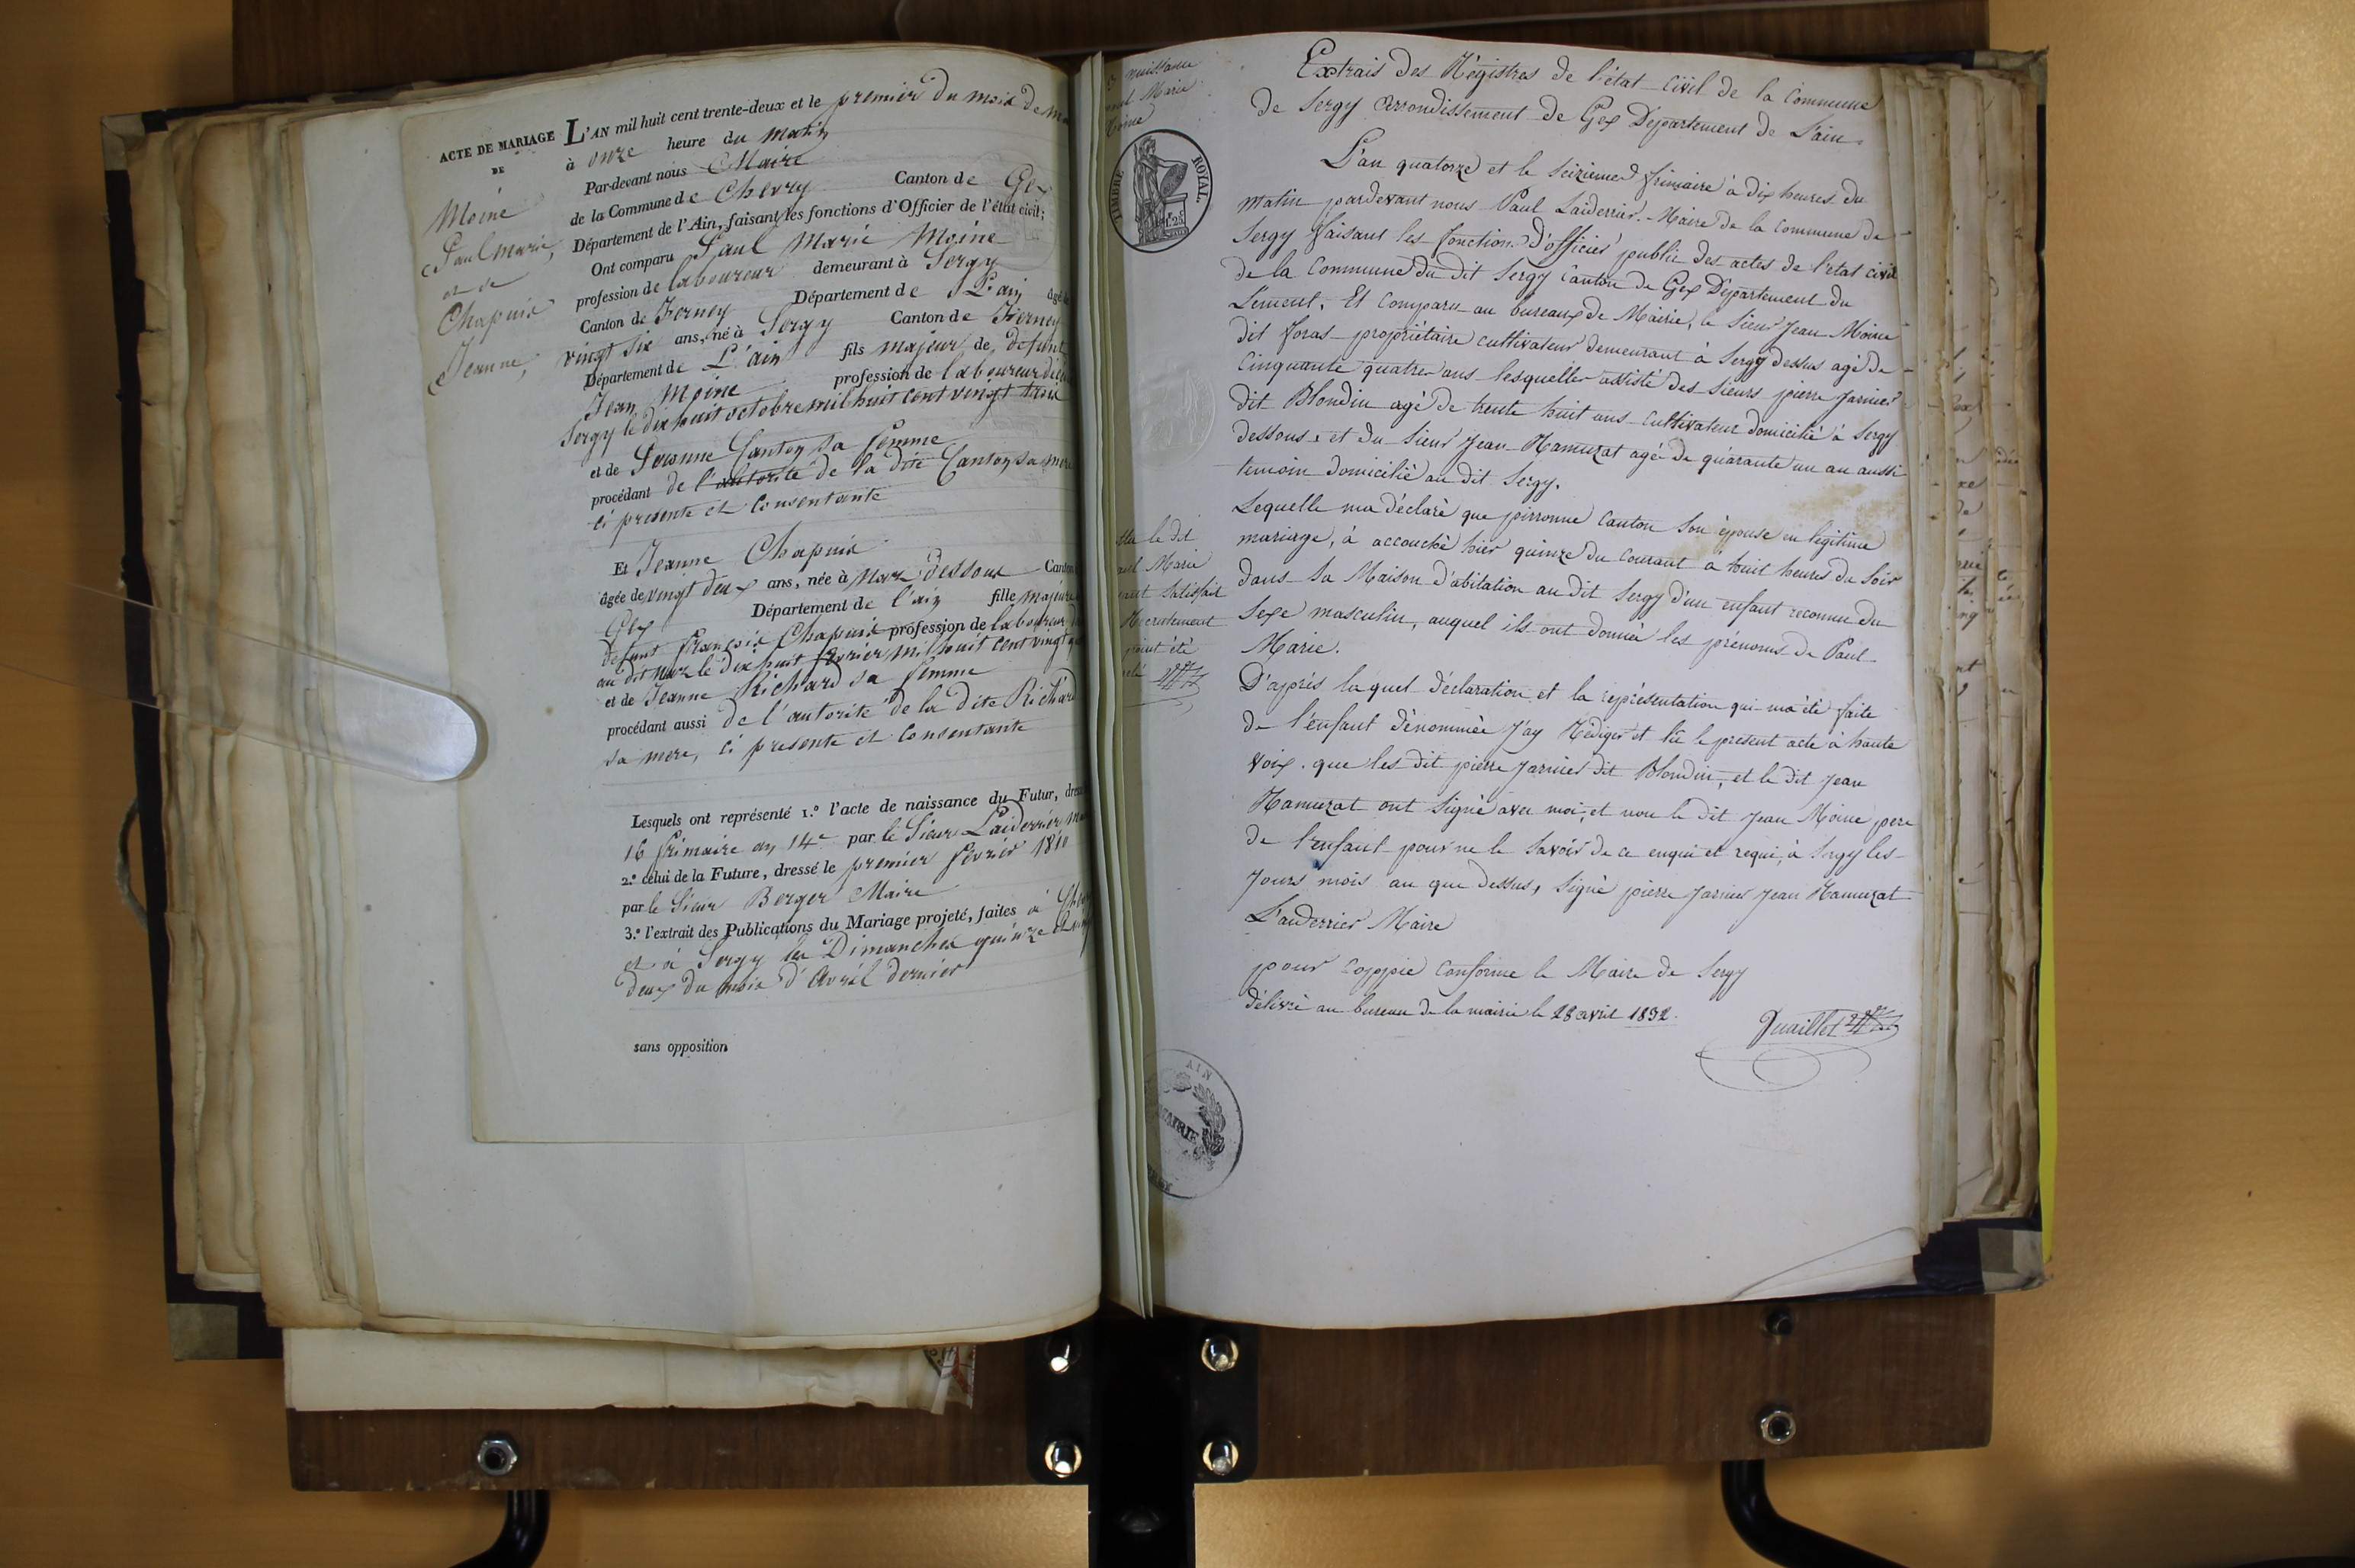 ACTE DE MARIAGE
DE
Moine
Paul Marie,
et de
Chapuis
Jeanne,
L'AN mil huit cent trente-deux et le premier du mois de
à onze heure du matin
Par-devant nous Maire
de la Commune de Chevry Canton de Gex
Département de l'Ain, faisant les fonctions d'Officier de l'état civil;
Ont comparu Paul Marie Moine
profession de laboureur demeurant à Sergy
Canton de Ferney Département de L'ain âgé
vingt six ans, né à Sergy Canton de Ferney
Département de L'ain fils majeur de defunt
Jean Moine profession de laboureur
Sergy le dix huit octobre mil huit cent vingt trois
et de Canton sa femme
procédant de l'autorité de la dite Canton sa mere
ci presente et consentante
Et Jeanne Chapuis
âgée de vingt deux ans, née à Naz dessous Canton
Gex Département de l'ain fille majeure
defunt François Chapuis profession de laboureur
au dit Naz le dix huit fevrier mil huit cent vingt
et de Jeanne Richard sa femme
procédant aussi de l'autorité de la dite Richard
sa mere, ci presente et consentante
Lesquels ont représenté 1.º l'acte de naissance du Futur,
16 frimaire an 14e par le Sieur Laiderrier
2.º celui de la Future, dressé le premier fevrier 1810
par le Sieur Berger Maire
3.º l'extrait des Publications du Mariage projeté, faites à
et à Sergy les Dimanches quinze et
deux du mois d'Avril dernier
sans opposition
naissance
Marie
Moine
TIMBRE ROYAL
Extrais des Régistres de l'état civil de la Commune
de Sergy Arrondissement de Gex Département de L'ain.
L'an quatorze et le seizieme frimaire à dix heures du
matin pardevant nous Paul Laiderrier Maire de la Commune de
Sergy faisant les fonction d'officier public des actes de l'état civil
de la Commune du dit Sergy Canton de Gex Département du
Lement. Et comparu au bureaux de Mairie, le Sieur Jean Moine
dit foras propriétaire cultivateur demeurant à Sergy dessus agé de
cinquante quatre ans lesqueller assisté des sieurs pierre Jarnier
dit Blondin agé de trente huit ans cultivateur domicilié à Sergy
dessous, et du Sieur Jean Hamuzat agé de quarante un an aussi
temoin domicilié au dit Sergy.
Lequelle ma déclaré que pirronne Canton son épouse en legitime
mariage, à accouché hier quinze du courant à huit heures du soir
dans sa Maison d'abitation au dit Sergy d'un enfant reconnu du
Sexe masculin, auquel ils ont donné les prénoms de Paul
Marie.
le dit
Marie
satisfait
Recrutement
été
D'après laquel déclaration et la représentation qui ma été faite
de l'enfant dénommée J'ay Rédiger et lu le présent acte à haute
Voix. que les dit pierre Jarnier dit Blondin, et le dit Jean
Hamuzat ont signé avec moi, et non le dit Jean Moine pere
de l'enfant pour ne le savoir de ce enqui et requi, à Sergy les
Jours mois an que dessus, Signé pierre Jarnier Jean Hamuzat
Laiderrier Maire
pour coppie conforme le Maire de Sergy
délivré au bureau de la mairie le 28 avril 1832.
Duaillet
AIN
MAIRIE